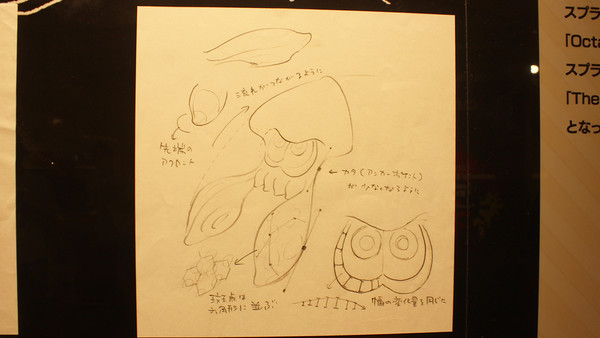 流れがつながるように
先端の
アクセント
← カク(アンカーポイント)
が少なくなるように
発光点は
六角形に並ぶ
幅の変化量を同じに
スプラ
「Octa
スプラ
「The
となっ